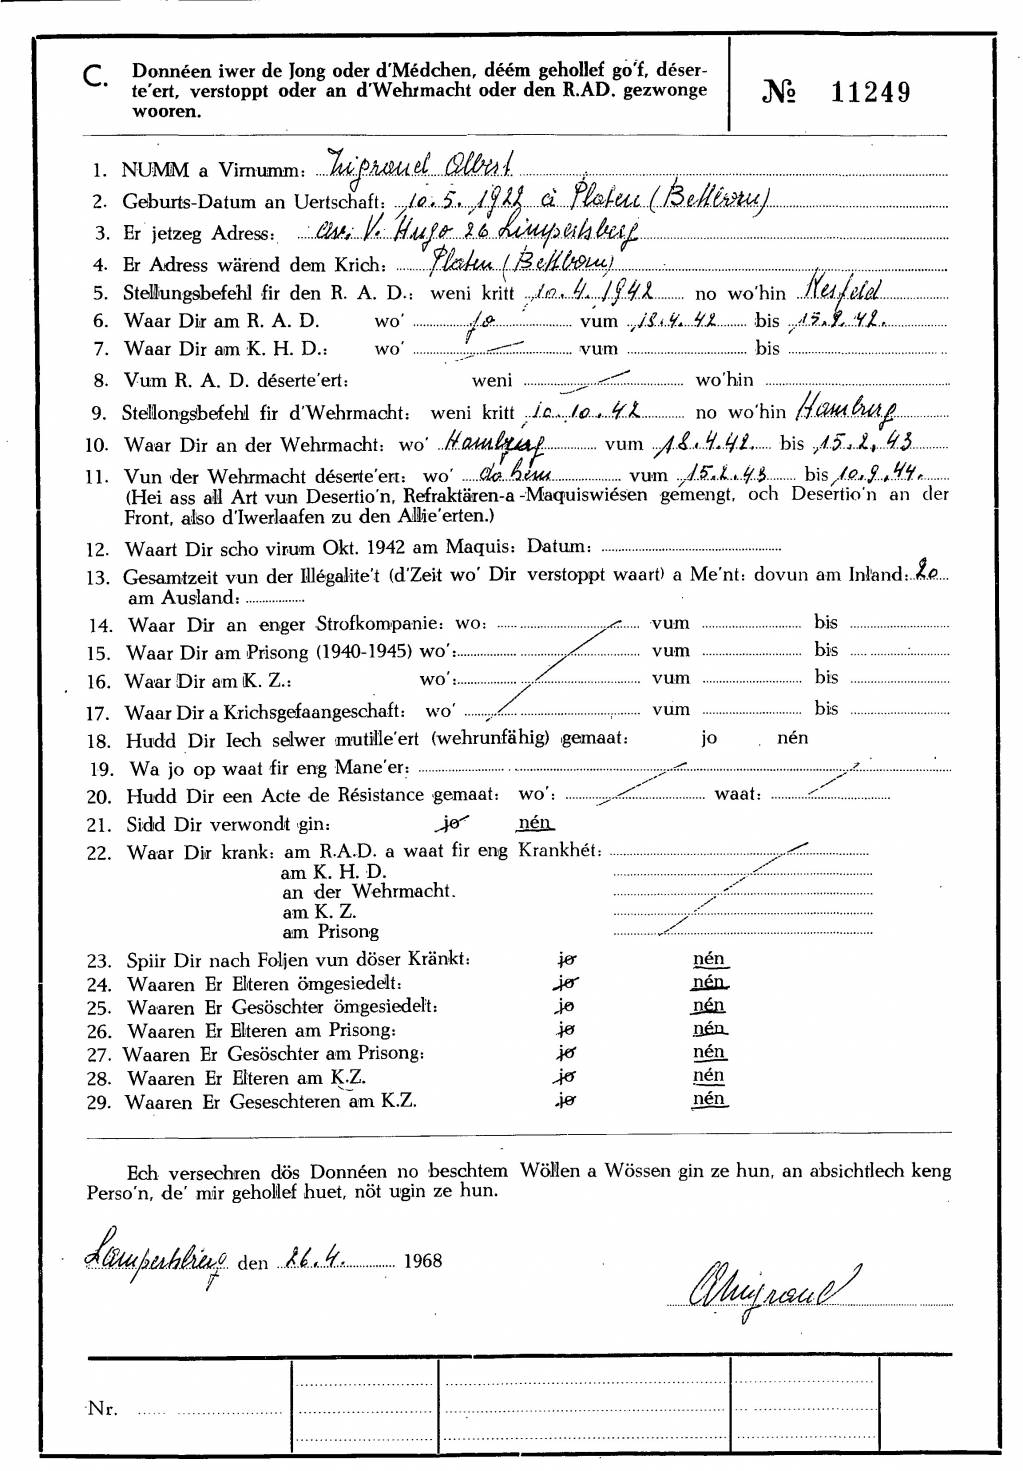 C. Donnéen iwer de Jong oder d'Médchen, déém gehollef go'f, déser-
te'ert, verstoppt oder an d'Wehrmacht oder den R.AD. gezwonge
wooren.
№ 11249
1. NUMM a Virnumm: Albert
2. Geburts-Datum an Uertschaft: 10.5.1922 à Platen (Bettborn)
3. Er jetzeg Adress: Av. V. Hugo 26 Limpertsberg
4. Er Adress wärend dem Krich: Platen (Bettborn)
5. Stellungsbefehl fir den R. A. D.: weni kritt 10.4.1942 no wo'hin Hersfeld
6. Waar Dir am R. A. D. wo' jo vum 18.4.42 bis 15.9.42.
7. Waar Dir am K. H. D.: wo' vum bis
8. Vum R. A. D. déserte'ert: weni wo'hin
9. Stellongsbefehl fir d'Wehrmacht: weni kritt 10.10.42 no wo'hin Hamburg
10. Waar Dir an der Wehrmacht: wo' Hamburg vum 18.4.42. bis 15.2.43
11. Vun der Wehrmacht déserte'ert: wo' dohém vum 15.2.43 bis 10.9.44.
(Hei ass all Art vun Desertio'n, Refraktären-a -Maquiswiésen gemengt, och Desertio'n an der
Front, also d'Iwerlaafen zu den Allie'erten.)
12. Waart Dir scho virum Okt. 1942 am Maquis: Datum:
13. Gesamtzeit vun der Illégalite't (d'Zeit wo' Dir verstoppt waart) a Me'nt: dovun am Inland: 20
am Ausland:
14. Waar Dir an enger Strofkompanie: wo: vum bis
15. Waar Dir am Prisong (1940-1945) wo': vum bis
16. Waar Dir am K. Z.: wo': vum bis
17. Waar Dir a Krichsgefaangeschaft: wo' vum bis
18. Hudd Dir Iech selwer mutille'ert (wehrunfähig) gemaat: jo nén
19. Wa jo op waat fir eng Mane'er:
20. Hudd Dir een Acte de Résistance gemaat: wo': waat:
21. Sidd Dir verwondt gin: jo nén
22. Waar Dir krank: am R.A.D. a waat fir eng Krankhét:
am K. H. D.
an der Wehrmacht.
am K. Z.
am Prisong
23. Spiir Dir nach Foljen vun döser Kränkt: jo nén
24. Waaren Er Elteren ömgesiedelt: jo nén
25. Waaren Er Gesöschter ömgesiedelt: jo nén
26. Waaren Er Elteren am Prisong: jo nén
27. Waaren Er Gesöschter am Prisong: jo nén
28. Waaren Er Elteren am K.Z. jo nén
29. Waaren Er Geseschteren am K.Z. jo nén
Ech versechren dös Donnéen no beschtem Wöllen a Wössen gin ze hun, an absichtlech keng
Perso'n, de' mir gehollef huet, nöt ugin ze hun.
Lampertsbierg den 26.4. 1968
Nr.